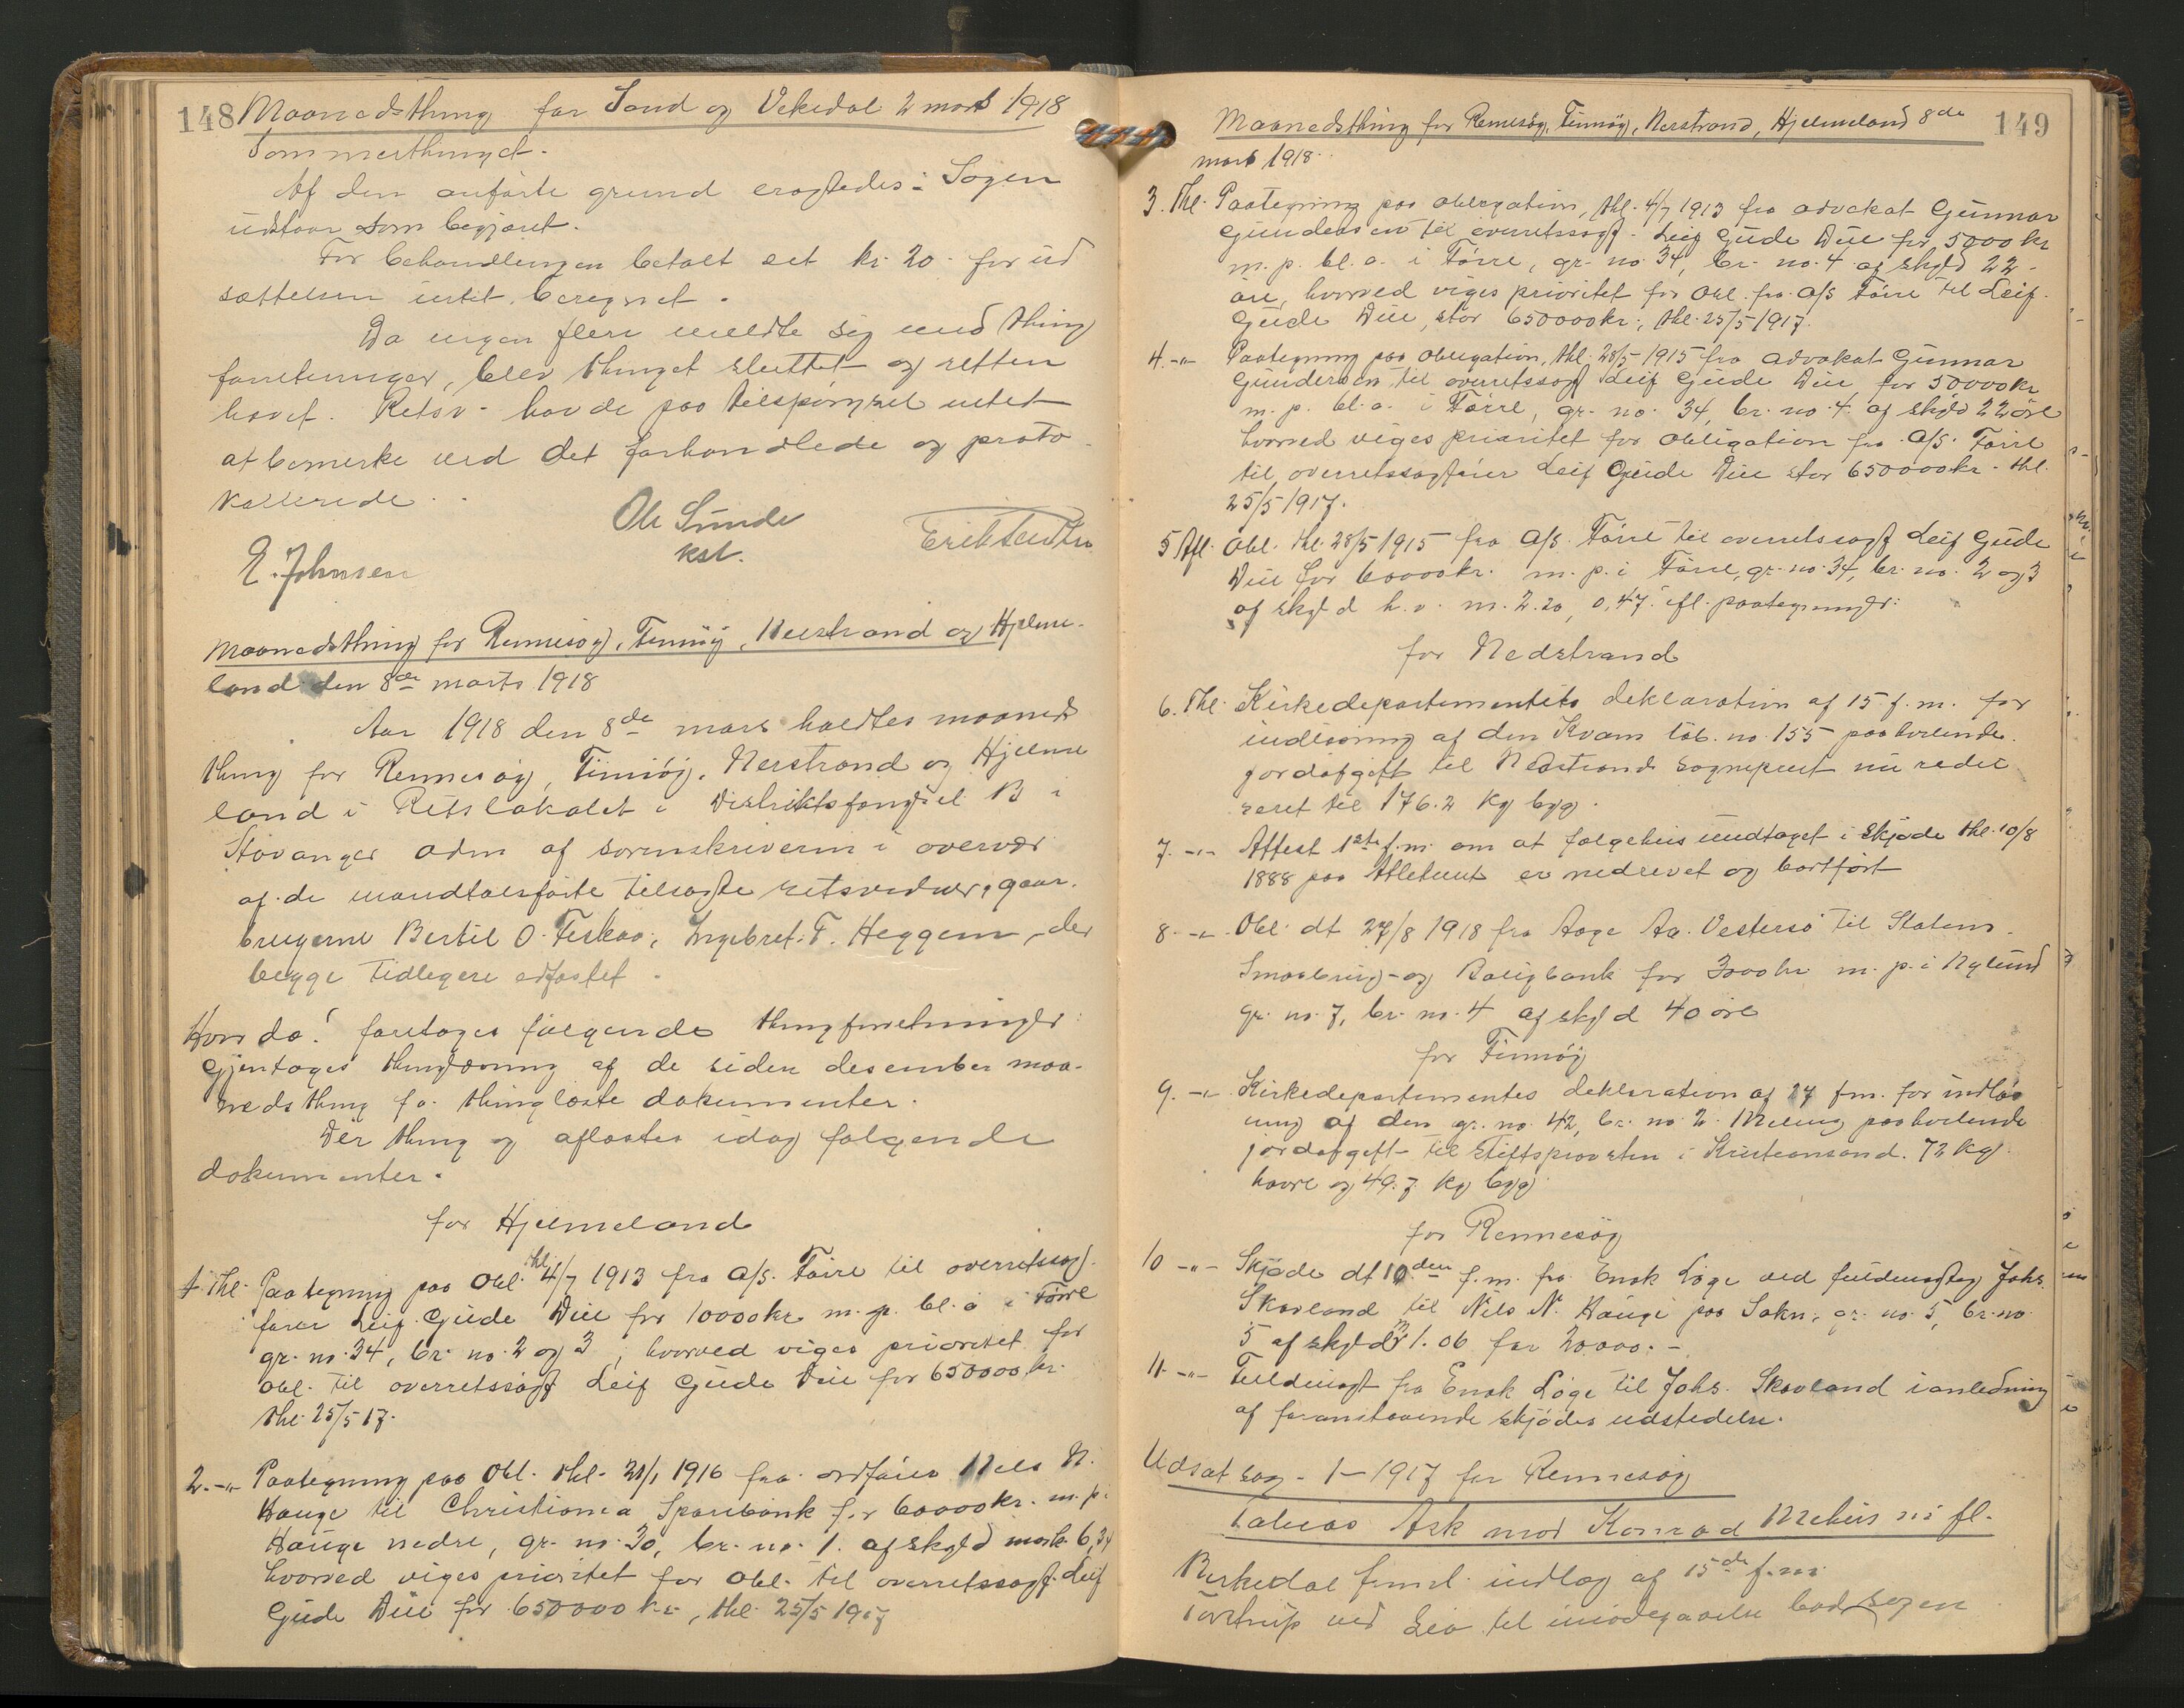 148 Maanedsthing for Sand og Vikedal 2 mars 1918
Sommerthinget.
Af den anførte grund eragtedes: Sagen
udstaar som begjæret.
For behandlingen betalt set kr. 20. for ud
sættelsen intet beregnet.
Da ingen flere meldte sig med thing
forretninger, blev thinget sluttet og retten
hævet. Retsv. havde paa tilspørgsel intet
at bemerke ved det forhandlede og proto
kollerede.
Ole Sunde
kst.
E. Johnsen
Maanedsthing for Rennesøy, Finnøy, Nerstrand og Hjelme-
land den 8de marts 1918
Aar 1918 den 8de mars holdtes maaneds
thing for Rennesøy, Finnøy, Nerstrand og Hjelme
land i Retslokalet i Distriktsfængsel B i
Stavanger adm af sorenskriveren i overvær
af de mandtalsførte tilsagte retsvidner, gaar.
brugerne Bertil O. Feskaa, Ingebret T. Heggem, der
begge tidligere edfæstet.
Hvor da! foretages følgende thingforretninger:
Gjentages thinglæsning af de siden desember maa-
nedsthing f.a. thinglæste dokumenter.
Der thing og aflæstes idag følgende
dokumenter.
for Hjelmeland
1. Thl. Paategning paa Obl. thl 4/7 1913 fra A/S. Førre til overretssag-
fører Leif Gude Due for 10000kr m.p. bl.a i Førre
gr. no. 34, br. no. 2 og 3, hvorved viges prioritet for
Obl. til overretssagf Leif Gude Due for 650000 kr.
thl. 25/5 17.
2. -"- Paategning paa Obl. thl. 21/1 1916 fra ordfører Nils N.
Hauge til Christiania Sparebank for 60000kr. m.p.i
Hauge nedre, gr. no. 30, br. no. 1. af skyld mark 6,34
hvorved viges prioritet for Obl. til overretssagf. Leif
Gude Due for 650000 kr., thl. 25/5 1917
Maanedsthing for Rennesøy, Finnøy, Nerstrand, Hjelmeland 8de 149
mars 1918.
3. Thl. Paategning paa obligation, thl. 4/7 1913 fra advokat Gunnar
Gundersen til overretssagf. Leif Gude Due for 5000 kr
m.p. bl.a. i Førre, gr. no. 34, br. no. 4 af skyld 22-
øre, hvorved viges prioritet for Obl. fra A/S Førre til Leif
Gude Due, stor 650000kr., thl. 25/5 1917.
4. -"- Paategning paa obligation, thl. 28/5 1915 fra advokat Gunnar
Gundersen til overretssagf Leif Gude Due for 50000kr
m.p. bl.a. i Førre, gr. no. 34, br. no. 4. af skyld 22 øre
hvorved viges prioritet for obligation fra A/S. Førre
til overretssagfører Leif Gude Due stor 650000kr. thl.
25/5 1917.
5 Afl. Obl. thl 28/5 1915 fra A/S. Førre til overretssagf Leif Gude
Due for 60000kr. m.p. i Førre, gr. no. 34, br. no. 2 og 3
af skyld h.v. m. 2.20, 0,47. ifl. paategninger:
for Nedstrand
6. Thl. Kirkedepartementets deklaration af 15 f.m. for
indløsning af den Kvam løb. no. 155 paahvilende
jordafgift til Nedstrand sogneprest nu redu
seret til 176.2 kg byg.
7. -"- Attest 1ste f.m. om at følgehus undtaget i skjøde thl. 10/8
1888 paa er nedrevet og bortført
8. -"- Obl. dt 27/8 1918 fra Aage Aa. Vestersø til Statens
Smaabrug- og Boligbank for 3000 kr m.p. i Nylund
gr. no. 7, br. no. 4 af skyld 40 øre
for Finnøy
9. -"- Kirkedepartementes deklaration af 27 fm. for indløs
ning af den gr. no. 42, br. no. 2. Meling paahvilende
jordafgift til stiftsprovsten i Kristiansand. 72 kg
havre og 49.7 kg byg
for Rennesøy
10 -"- Skjøde dt 10den f.m. fra Enok Løge ved fuldmægtig Johs.
Skavland til Nils N. Hauge paa Sokn, gr. no. 5, br. no.
5 af skyld m 1.06 for 20000.-
11. -"- Fuldmagt fra Enok Løge til Johs. Skavland i anledning
af foranstaaende skjødes udstedelse.
Udsat sag - 1-1917 for Rennesøy
Tobias Ask mod Konrad Mehus m. fl.
Birkedal freml. indlæg af 15de f.m.
Tortrup ved Lea til imødegaaelse bad sagen